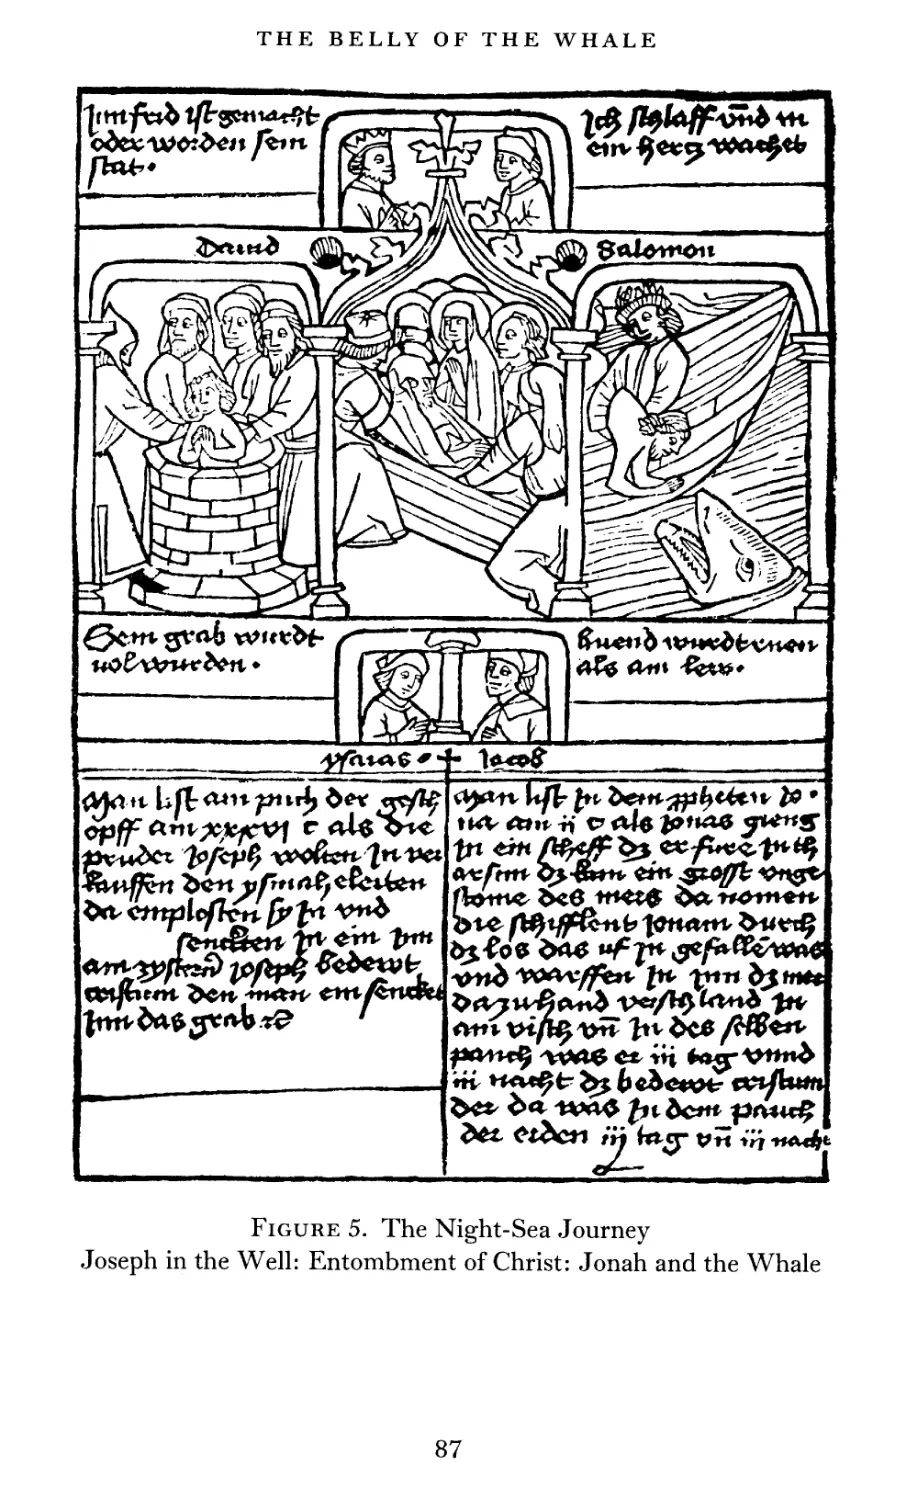 THE BELLY OF THE WHALE
Im frid ist gemacht
oder worden sein
stat.
Ich schlaff vnd m
ein hercz wachet
Dauid
Salomon
Sein grab wurdt
wurden.
als am lew.
ysaias.
Iacob
Man list am puch der gesch
opff am xxxvj c als die
prüder Joseph wolten In ver
kauffen den ysmaheleiten
da emplosten sy In vnd
senckten In ein
am zystern Joseph bedewt
cristum den man ein sencket
Inn das grab
Man list In dem ppheten Jo
na am ij c als Jonas gieng
In ein scheff dz er fure In th
arsim dz kam ein grosst vnge
stome des mers da nomen
die schifflent Jonam durch
dz los das uf In gefallē was
vnd warffen In Inn dz mer
da zuhand verschland In
am visch vn̄ In des selben
pauch was er iij tag vnnd
iij nacht dz bedewt cristum
der da was In dem pauch
der erden iij tag vn̄ iij nacht
FIGURE 5. The Night-Sea Journey
Joseph in the Well: Entombment of Christ: Jonah and the Whale
87